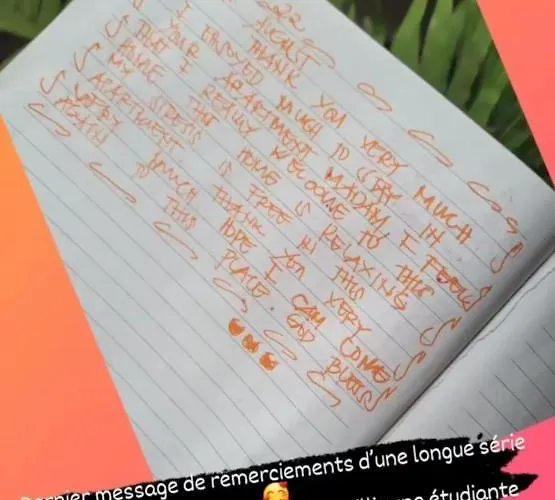 2022
THANK YOU VERY MUCH
I ENJOYED MUCH TO STAY IN
YOUR APARTMENT MADAM I FEEL
THAT I REALLY WELCOME TO THIS
HOME THAT HOME IS RELAXING
MY IS FREE IN THIS
APARTMENT. THANK YOU VERY
MUCH HOPE I CAN COME
AGAIN TO THIS PLACE. GOD BLESS
Dernier message de remerciements d'une longue série
une étudiante